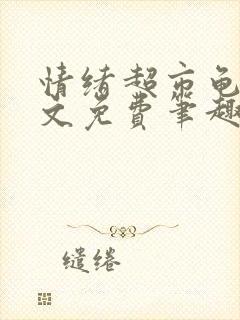 情绪超市龟
文免费笔趣
缱绻